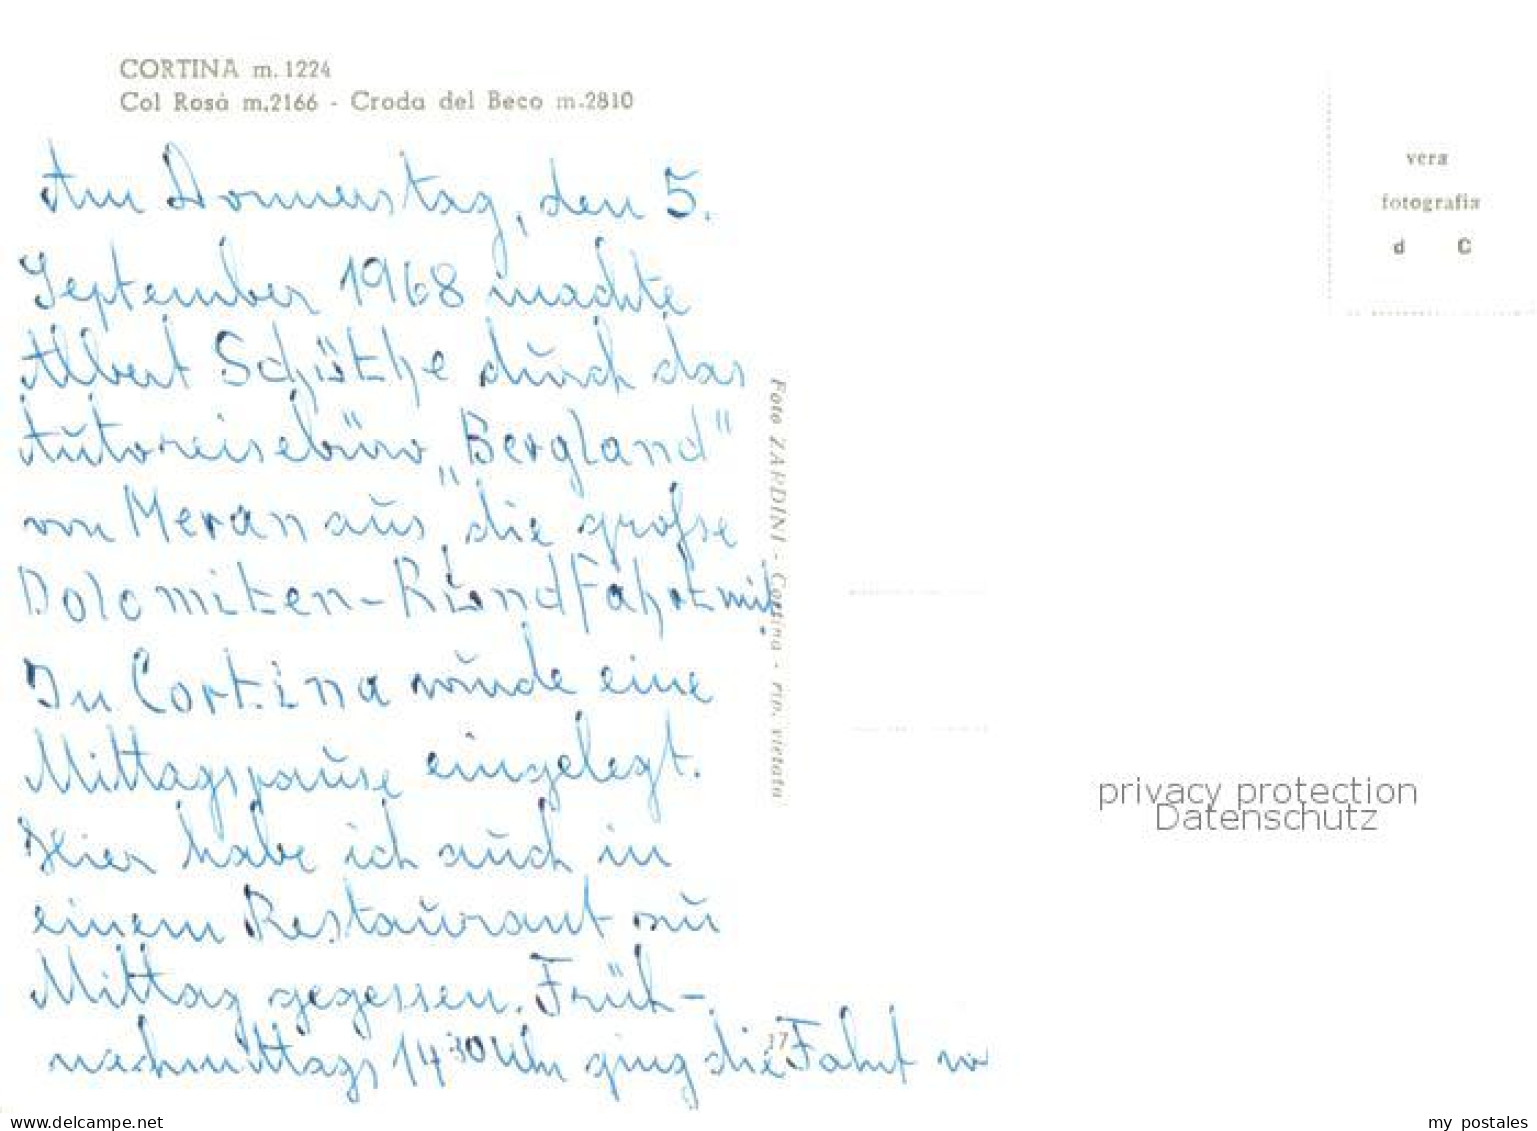 CORTINA m. 1224
Col Rosà m.2166 - Croda del Beco m.2810
Am Donnerstag, den 5.
September 1968 machte
Albert Schüthe durch das
Autoreisebüro „Bergland"
von Meran aus, die große
Dolomiten-Rundfahrt mit.
In Cortina wurde eine
Mittagspause eingelegt.
Hier habe ich auch in
einem Restaurant zu
Mittag gegessen. Früh-
nachmittags 14 30 Uhr ging die Fahrt
Foto ZARDINI - Cortina - rip. vietata
17
vera
fotografia
d C
privacy protection
Datenschutz
delcampe.net
my_postales